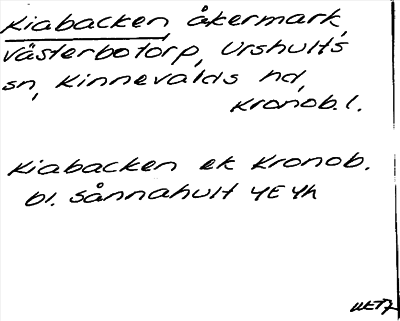 Kiabacken, åkermark,
Västerbotorp, Urshults
sn, Kinnevalds hd,
Kronob. l.
Kiabacken ek Kronob.
bl. Sånnahult 4E4h